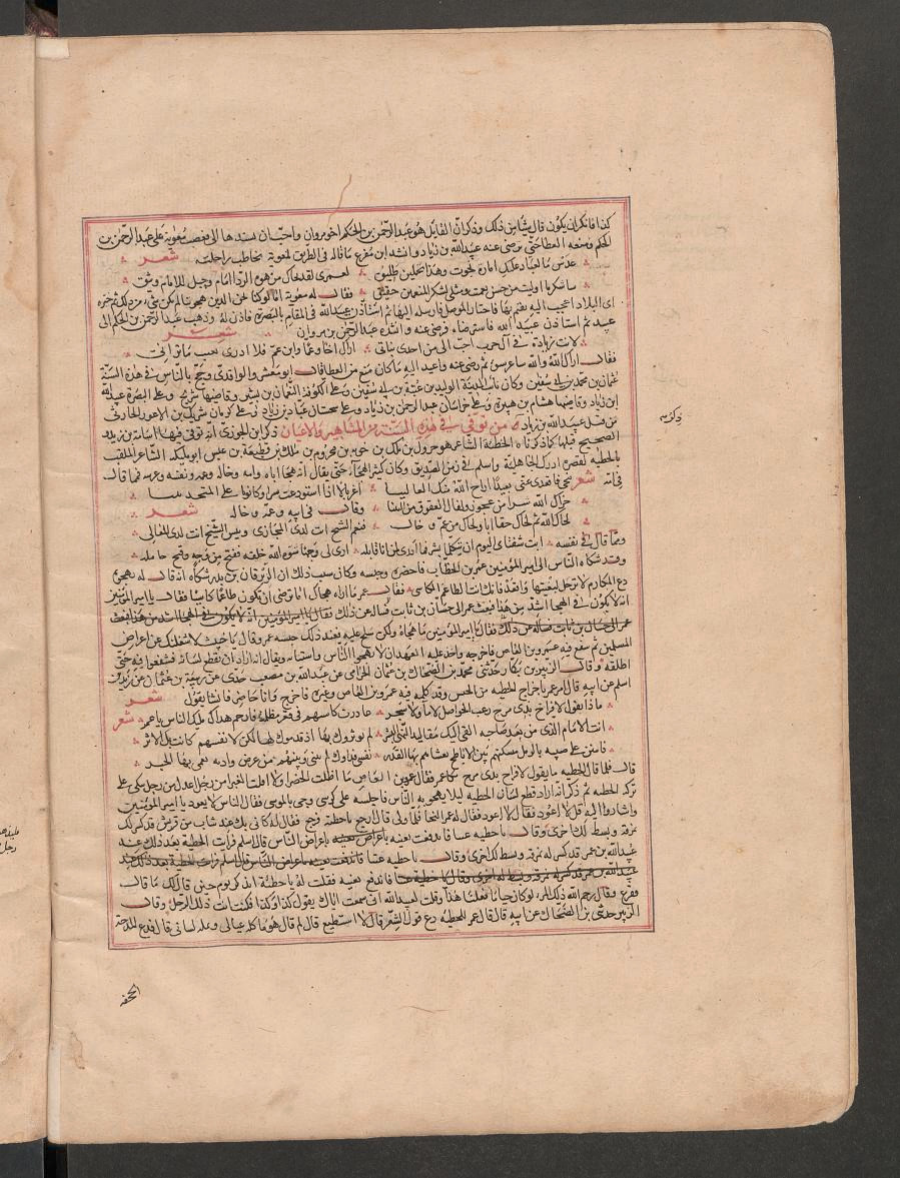 كذا فانكر ان يكون قال شيئا من ذلك وذكر ان القائل هو عبد الرحمن بن الحكم اخو مروان واحب ان يسندها الى فغضب معوية على عبد الرحمن بن
الحكم ومنعه العطا حتى رضى عنه عبيد الله بن زياد وانشد ابن مفرغ ما قاله فى الطريق لمعوية يخاطب راحلته شعر
عدس ما لعباد عليك امارة نجوت وهذا تحملين طليق لعمرى لقد نجاك من هوة الردى امام وحبل للامام وثيق
ساشكر ما اوليت من حسن نعمة ومثلى بشكر المنعمين حقيق فقال له معوية اما لو كنا نحن الذين هجوتنا لم يكن شيء من ذلك ثم خيره
اى البلاد احب اليه يقيم بها فاختار الموصل فارسله اليها ثم استأذن عبيد الله فى المقام بالبصرة فاذن له وذهب عبد الرحمن بن الحكم الى
عبيد ثم استأذن عبيد الله فاسترضاه فرضى عنه وانشده عبد الرحمن بن مروان شعر
لانت زيادة فى آل حرب احب الى من احدى بنانى اراك اخا وعما وابن عم فلا ادرى بغيب ما ترانى
فقال اراك الله والله شاعر سوء ثم رضى عنه واعيد اليه ما كان منع من العطا قال ابو معشر والواقدى وحج بالناس فى هذه السنة
عثمان بن محمد بن ابى سفين وكان نائب المدينة الوليد بن عتبة بن ابى سفين وعلى الكوفة النعمان بن بشير وقاضيها شريح وعلى البصرة عبيد الله
ابن زياد وقاضيها هشام بن هبيرة وعلى خراسان عبد الرحمن بن زياد وعلى سجستان عباد بن زياد وعلى كرمان شريك بن الاعور الحارثى
من قبل عبيد الله بن زياد من توفى فى هذه السنة من المشاهير والاعيان ذكر ابن الجوزى انه توفى فيها اسامة بن زيد و
الصحيح قبلها كما ذكرناه الحطيئة الشاعر هو جرول بن ملك بن جرول بن مخزوم بن ملك بن قطيعة بن عبس ابو مليكة الشاعر الملقب
بالحطيئه لقصره ادرك الجاهلية واسلم فى زمن الصديق وكان كثير الهجاء حتى يقال انه هجا اباه وامه وخاله وعمه ونفسه وعرسه فما قال
فى امه شعر تنحى فاقعدى عنى بعيدا اراح الله منك العالمينا اغربالا اذا استودعت سرا وكانونا على المتحدثينا
جزاك الله شرا من عجوز ولقاك العقوق من البنينا وقال فى ابيه وعمه وخاله شعر
لحاك الله ثم لحاك حقا ابا ولحاك من عم وخال فنعم الشيخ انت لدى المخازى وبيس الشيخ انت لدى المعالى
وما قال فى نفسه ابت شفتاى اليوم ان تتكلما بشر فما ادرى لمن انا قايله ارى لى وجها شوه الله خلقه فقبح من وجه وقبح حامله
وقد شكاه الناس الى امير المومنين عمر بن الخطاب فاحضره وحبسه وكان سبب ذلك ان الزبرقان بن بدر شكاه انه قال له يهجوه
دع المكارم لا ترحل لبغيتها واقعد فانك انت الطاعم الكاسى فقال عمر ما اراه هجاك اما ترضى ان تكون طاعما كاسيا فقال يا امير المومنين
انه لا يكون فى الهجا اشد من هذا فبعث عمر الى حسان بن ثابت فساله عن ذلك فقال يا امير المومنين انه لا يكون فى الهجا اشد من هذا فبعث
عمر الى حسان بن ثابت فساله عن ذلك فقال يا امير المومنين ما هجاه ولكن سلح عليه فعند ذلك حبسه عمر وقال يا خبيث لاشغلنك عن اعراض
المسلمين ثم شفع فيه عمرو بن العاص فاخرجه واخذ عليه العهد ان لا يهجو الناس واستتابه ويقال انه اراد ان يقطع لسانه فشفعوا فيه حتى
اطلقه وقال الزبير بن بكار حدثنى محمد بن الضحاك بن عثمان الحزامى عن عبد الله بن مصعب حدثنى عن ربيعة بن عثمان عن زيد بن
اسلم عن ابيه قال امر عمر باخراج الحطيئه من الحبس وقد كلمه فيه عمرو بن العاص وغيره فاخرج وانا حاضر فانشا يقول شعر
ماذا تقول لافراخ بذى مرخ زغب الحواصل لا ماء ولا شجر غادرت كاسبهم فى قعر مظلمة فارحم هداك مليك الناس يا عمر شعر
انت الامام الذى من بعد صاحبه القى اليك مقاليد النهى البشر لم يوثروك بها اذ قدموك لها لكن لانفسهم كانت بك الاثر
فامنن على صبية بالرمل مسكنهم بين الاباطح يغشاهم بها القدر نفسى فداوك كم بينى وبينهم من عرض واديه يعمى بها الخبر
قال فلما قال الحطيئه ما تقول لافراخ بذى مرخ بكا عمر فقال عمرو بن العاص ما اظلت الخضرا ولا اقلت الغبرا من رجل اعدل من رجل يبكى على
تركه الحطيئه ثم ذكر انه اراد قطع لسان الحطيئه ليلا يهجو به الناس فاجلسه على كرسى وجى بالموسى فقال الناس لا يعود يا امير المومنين
واشاروا اليه قل لا اعود فقال لا اعود فقال له عمر النجا فلما ولى قال ارجع يا حطيئه فرجع فقال له كانى بك عند شاب من قريش قد كسر لك
نمرقة وبسط لك اخرى وقال يا حطيئه غننا فاندفعت تغنيه باعراض الناس قال اسلم فرايت الحطيئة بعد ذلك عند
عبيد الله بن عمر قد كسر له نمرقة وبسط له اخرى وقال يا حطيئه غننا فاندفعت تغنيه باعراض الناس قال اسلم فرايت الحطيئة بعد ذلك عند
عبيد الله بن عمر قد كسر له نمرقة وبسط له اخرى وقال يا حطيئه غننا فاندفع يغنيه فقلت له يا حطيئة اتذكر يوم عمر حين قال لك ما قال
ففزع وقال رحم الله ذلك المرء لو كان حيا ما فعلنا هذا وقلت لعبيد الله انى سمعت اباك يقول كذا وكذا فكنت انت ذلك الرجل وقال
الزبير حدثنى محمد بن الضحاك عن ابيه قال قال عمر للحطيئه دع قول الشعر قال لا استطيع قال لم قال هو ماكلة عيالى وعلة لسانى قال فدع المدحة
المجحفه